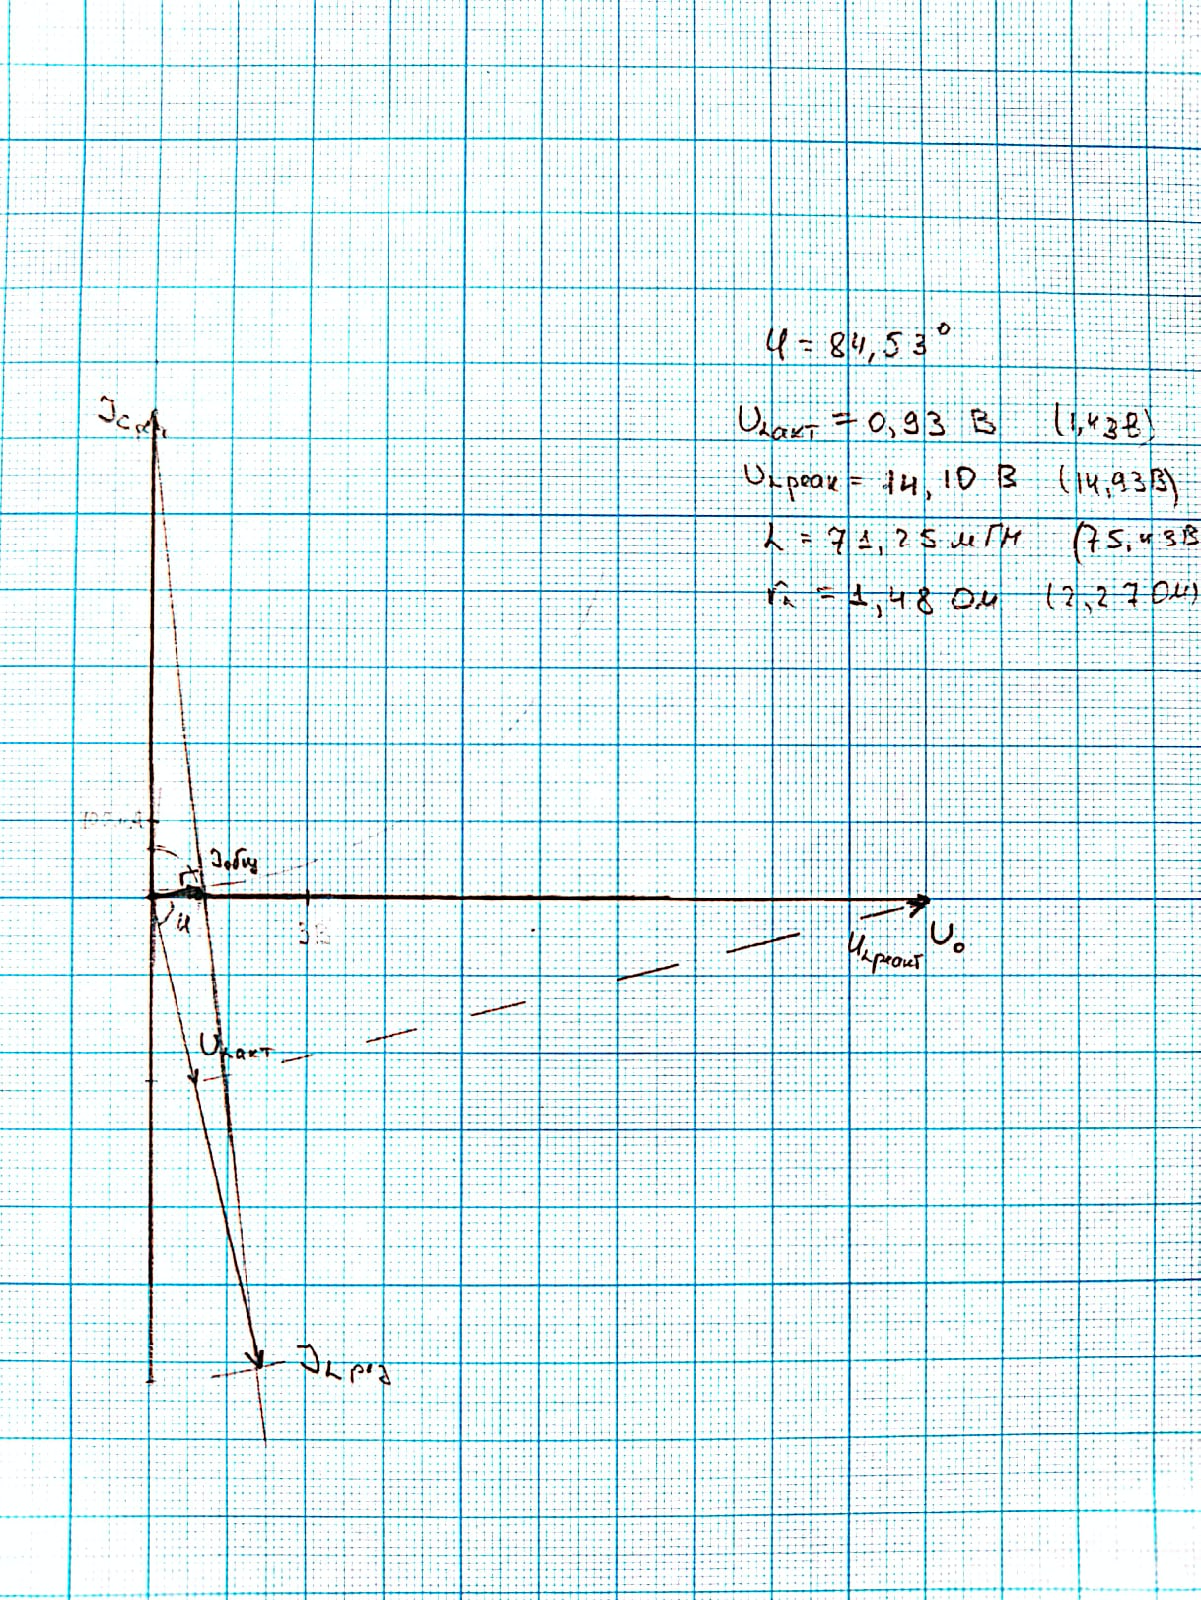 φ = 84,53°
U_Lакт = 0,93 В (1,43В)
U_Lреак = 14,10 В (14,93В)
L = 71,25 мГн (75,43В
r_к = 1,48 Ом (2,27 Ом)
I_C рез
I_общ
φ
3В
U_0
U_Lреакт
U_Lакт
I_L рез